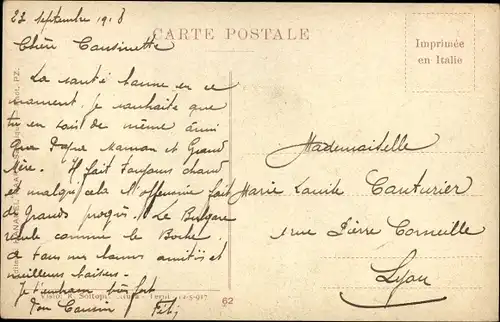 23 septembre 1918
CARTE POSTALE
Imprimée
en Italie
Chère Cousinette
La santé bonne en ce
moment. je souhaite que
tu en soit de même ainsi
que Papa Maman et Grand
Mère. Il fait toujours chaud
et malgré cela l'offensive fait
de grands progrès. Le Bulgare
recule comme le Boche.
de tous mes bonnes amitiés et
meilleurs baisers.
Je t'embrasse bien fort
Ton Cousin
Mademoiselle
Marie Louise Couturier
rue Pierre Corneille
Lyon
62